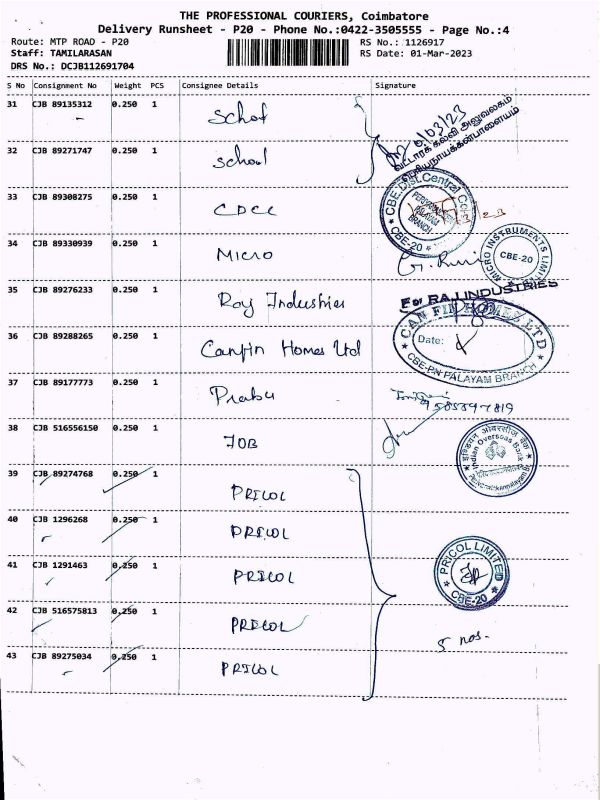 THE PROFESSIONAL COURIERS, Coimbatore
Delivery Runsheet - P20 - Phone No.:0422-3505555 - Page No.:4
Route: MTP ROAD - P20
RS No.: 1126917
Staff: TAMILARASAN
RS Date: 01-Mar-2023
DRS No.: DCJB112691704
S No Consignment No Weight PCS Consignee Details Signature
31 CJB 89135312 0.250 1 School
வட்டாரக் கல்வி அலுவலகம்
பெரியநாயக்கன்பாளையம்
32 CJB 89271747 0.250 1 school
33 CJB 89308275 0.250 1 CDCC
CBE.Dist.Central Co
PERIYANAI
PALAYAM
BRANCH
CBE-20
34 CJB 89330939 0.250 1 Micro
MICRO INSTRUMENTS LIMIT
CBE-20
35 CJB 89276233 0.250 1 Raj Industries
For RAJ INDUSTRIES
36 CJB 89288265 0.250 1 Canfin Homes Ltd
CAN FIN HOMES LTD
Date:
CBE-PN PALAYAM BRANCH
37 CJB 89177773 0.250 1 Prabu
38 CJB 516556150 0.250 1 IOB
इण्डियन ओवरसीज़ बैंक
Indian Overseas Bank
39 CJB 89274768 0.250 1 PRICOL
40 CJB 1296268 0.250 1 PRICOL
41 CJB 1291463 0.250 1 PRICOL
PRICOL LIMITED
CBE-20
42 CJB 516575813 0.250 1 PRICOL
5 nos.
43 CJB 89275034 0.250 1 PRICOL